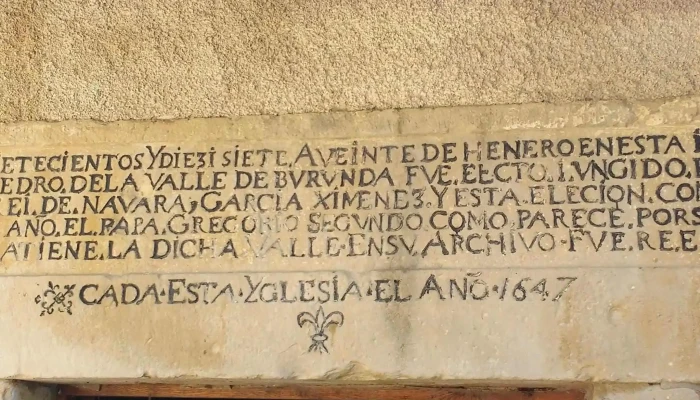 ETECIENTOS YDIE3I SIETE. AVEINTE DE HENERO ENESTA
EDRO. DELA VALLE DE BURUNDA FUE. ELECTO. I. UNGIDO.
EI. DE. NAVARA, GARCIA XIMENE3. Y ESTA. ELECION. CO
AÑO. EL. PAPA. GREGORIO SEGUNDO COMO. PARECE. POR
ATIENE. LA DICHA VALLE. ENSU. ARCHIVO. FUE. RE E
CADA. ESTA. YGLESIA. EL AÑO. 1647